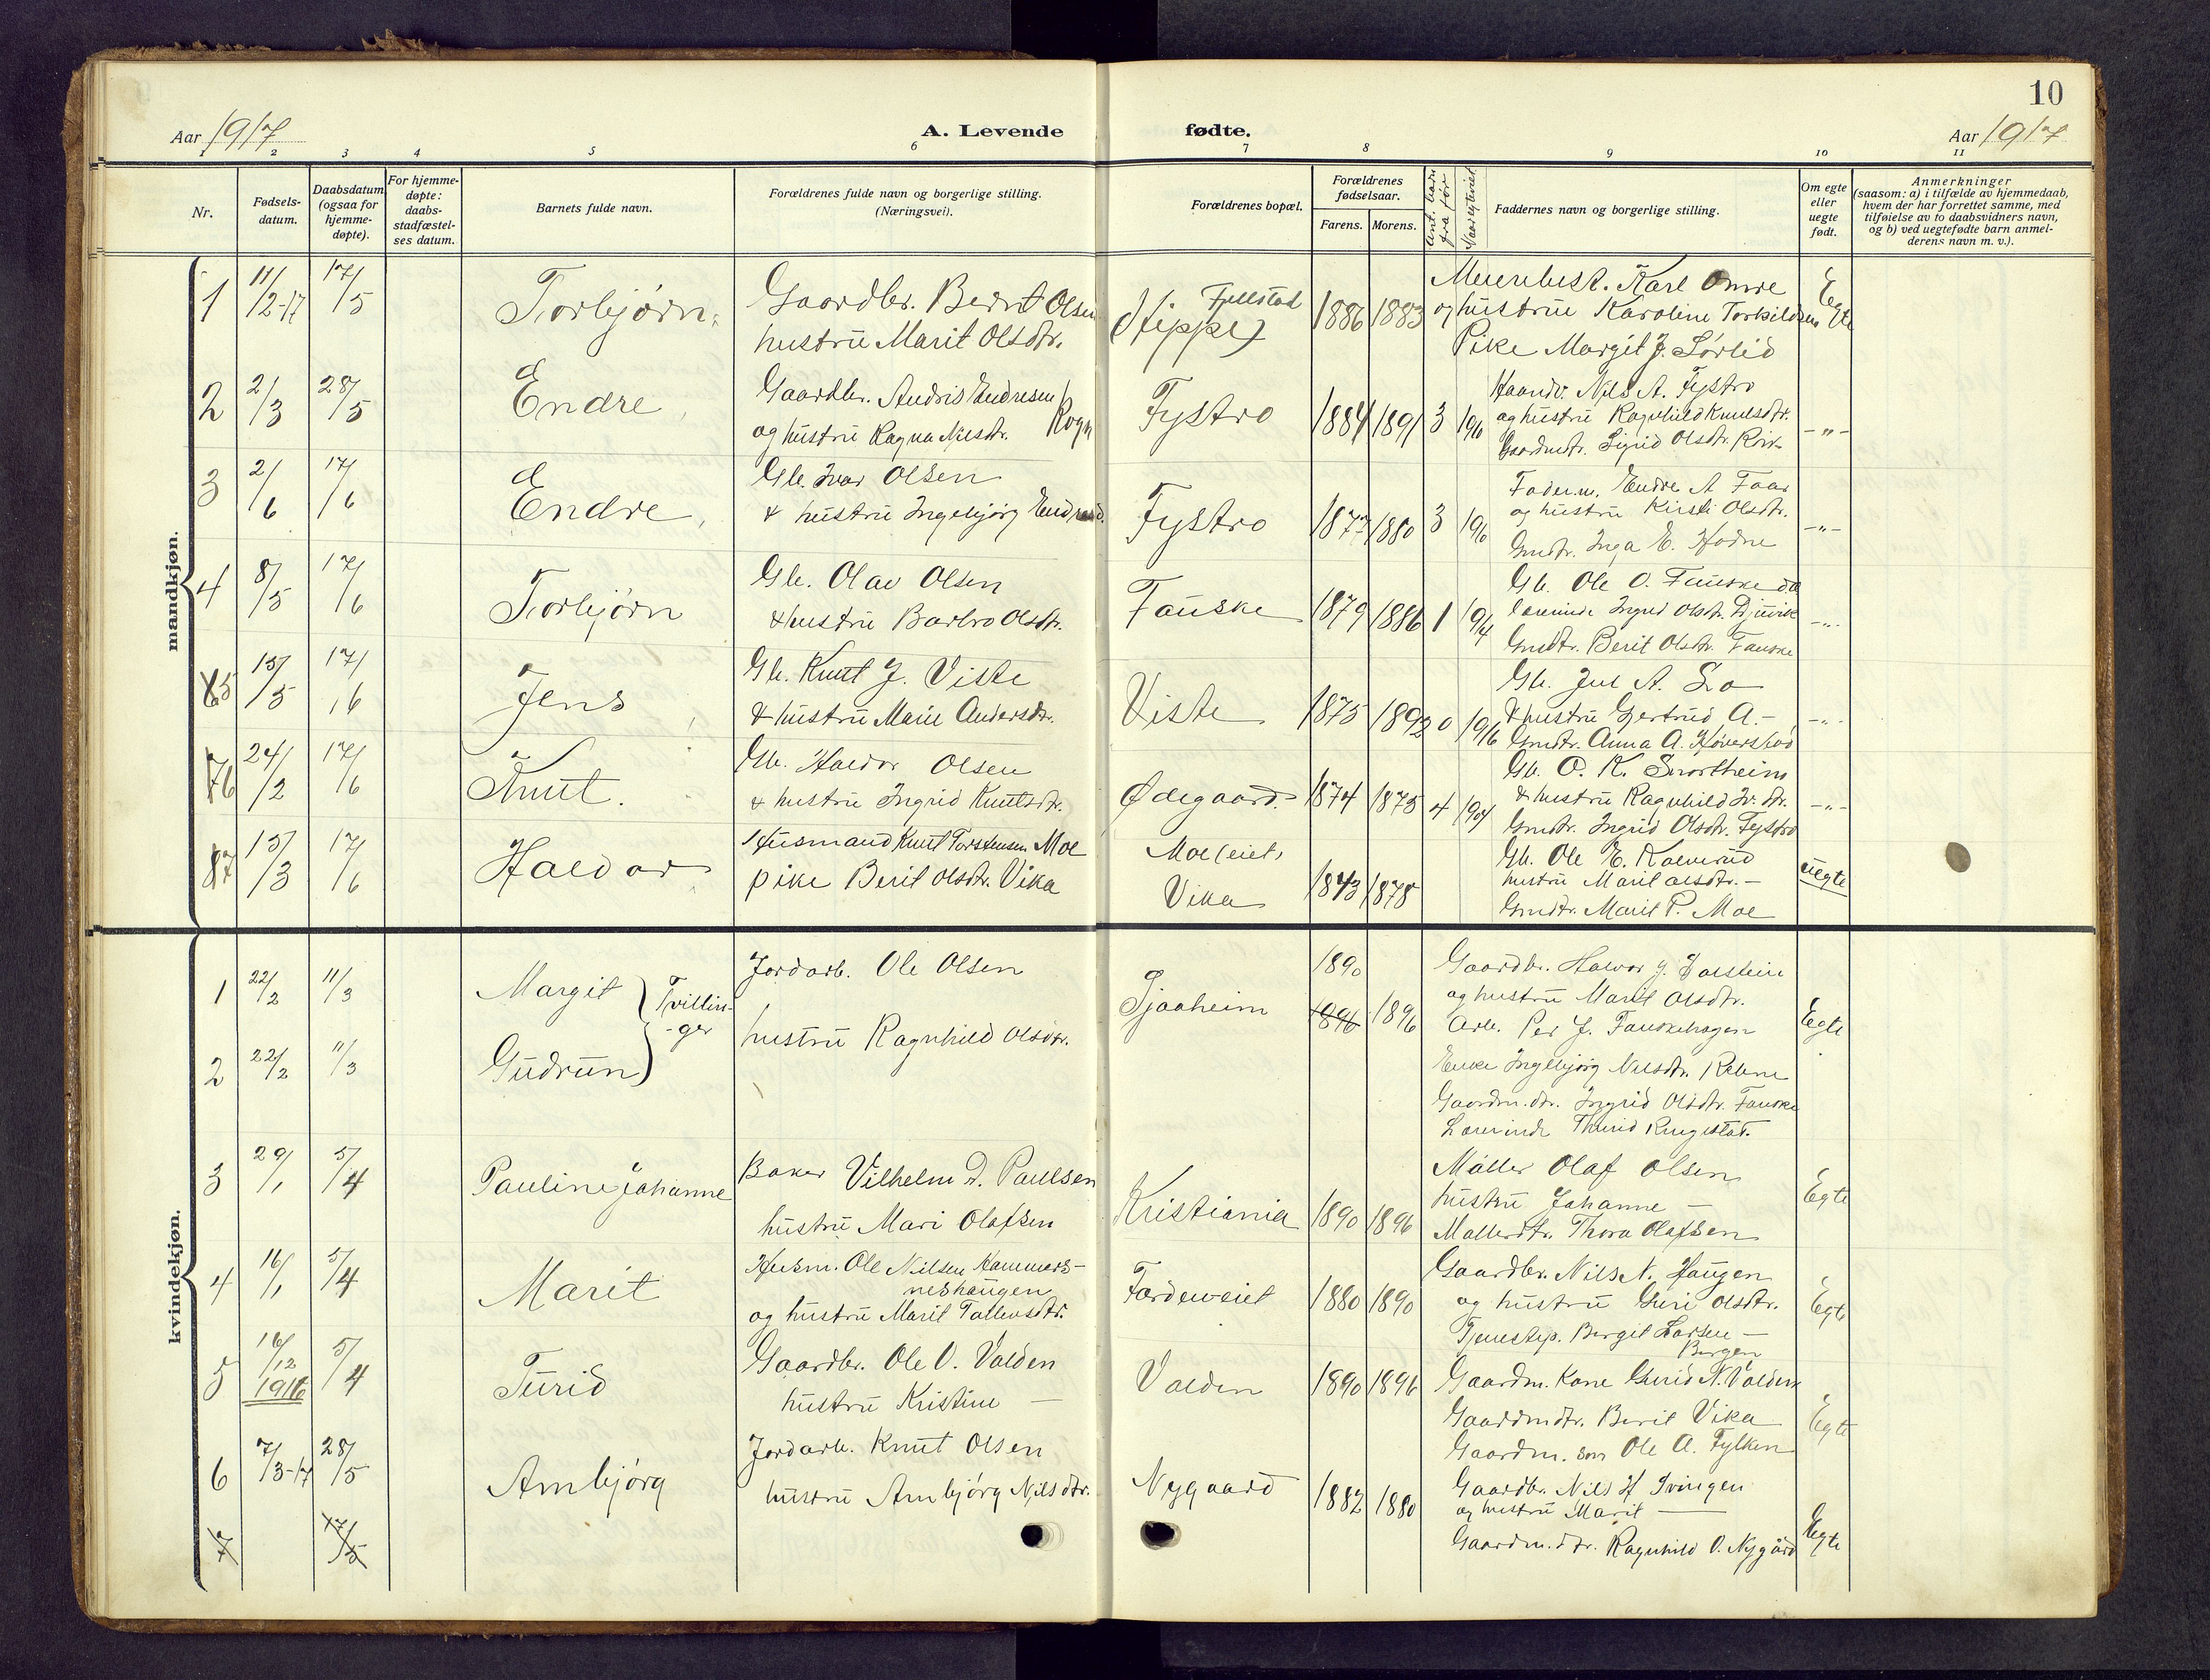 10
Aar 1917
A. Levende fødte.
Aar 1917
1 2 3 4 5 6 7 8 9 10 11
Nr.
Fødsels-
datum.
Daabsdatum
(ogsaa for
hjemme-
døpte).
For hjemme-
døpte:
daabs-
stadfæstel-
ses datum.
Barnets fulde navn.
Forældrenes fulde navn og borgerlige stilling.
(Næringsvei).
Forældrenes bopæl.
Forældrenes
fødselsaar.
Farens. Morens.
Ant. barn
fra før
Naar egteviet
Faddernes navn og borgerlige stilling.
Om egte
eller
uegte
født.
Anmerkninger
(saasom: a) i tilfælde av hjemmedaab,
hvem der har forrettet samme, med
tilføielse av to daabsvidners navn,
og b) ved uegtefødte barn anmel-
derens navn m. v.).
mandkjøn.
1 11/2-17 17/5 Torbjørn
Gaardbr. Bernt Olsen
hustru Marit Olsdtr.
Fjellstad
1886 1883
Meieribest. Karl Omre
og hustrue Karoline Torkildsen
Pike Margit J. Sørlid
Egte
2 2/3 28/5 Endre
Gaardbr. Andris Endresen Rogn
og hustru Ragna Nilsdtr.
Fystro 1884 1891 3 1910
Haandv. Nils A. Fystro
og hustru Ragnhild Knutsdtr.
Gaardmdtr. Sigrid Olsdtr.
-„-
3 2/6 17/6 Endre
Gb. Ivar Olsen
& hustru Ingebjørg Endresd.
Fystro 1877 1880 3 1910
Endre A Faar
og hustru Kirsti Olsdtr.
Gmdtr. Inga E. Hodne
-„-
4 8/5 17/6 Torbjørn
Gb. Olav Olsen
& hustru Barbro Olsdtr.
Fauske 1879 1886 1 1914
Gb. Ole O. Fauske
Lærerinde Ingrid Olsdtr.
Gmdtr. Berit Olsdtr. Fauske
-„-
5 15/5 17/6 Jens
Gb. Knut J. Viste
& hustru Marie Andersdtr.
Viste 1875 1892 0 1916
Gb. Jul A. Lo
& hustru Gjertrud A. -
Gmdtr. Anna A. Høverstad
-„-
6 24/2 17/6 Knut.
Gb. Haldor Olsen
& hustru Ingrid Knutsdtr.
Ødegaard 1874 1875 4 1904
Gb. O. K. Snortheim
& hustru Ragnhild Iv. dtr.
Gmdtr. Ingrid Olsdtr. Fystro
-„-
7 15/3 17/6 Haldor
Husmand Knut Torstensen Moe
pike Berit Olsdtr. Vika
Moe(eiet)
Vika 1843 1878
Gb. Ole E. Kalverud
hustru Marit Olsdtr. -
Gmdtr. Marit P. Moe
uegte
kvindekjøn.
1 22/2 11/3 Margit
2 22/2 11/3 Gudrun
Tvillin-
-ger
Jordarb. Ole Olsen
hustru Ragnhild Olsdtr.
Tjaaheim 1890 1896 1896
Gaardbr. Halvor J.
og hustru Marit Olsdtr.
Arb. Per J. Fauskehagen
Enke Ingebjørg Nilsdtr. Rebne
Gaardm. dtr. Ingrid Olsdtr. Fauske
Lærerinde Thurid Ringestat.
Egte
3 29/1 5/4 Pauline Johanne
Baker Vilhelm D. Paulsen
hustru Mari Olafsen
Kristiania 1890 1896
Møller Olaf Olsen
hustru Johanne -
Møllerdtr. Thora Olafsen
Egte
4 16/1 5/4 Marit
Husm. Ole Nilsen Hammers-
neshaugen
og hustru Marit Tollevsdtr.
Fordeseiet 1880 1890
Gaardbr. Nils N. Haugen
og hustru Guri Olsdtr.
Tjenestep. Bergit Larsen -
Bergen
Egte
5 16/12 1916 5/4 Turid
Gaardbr. Ole O. Valden
hustru Kristine -
Valden 1890 1896
Gaardm. Kone Gurid N. Valden
Gaardmdtr. Berit Vika
Gaardm. søn Ole A. Fylken
Egte
6 7/3-17 28/5 Arnbjørg
Jordarb. Knut Olsen
hustru Arnbjørg Nilsdtr.
Nygaard 1882 1880
Gaardbr. Nils H Tvingen
og hustru Marit -
Gaardm. dtr. Ragnhild O. Nygård
Egte
7 17/5